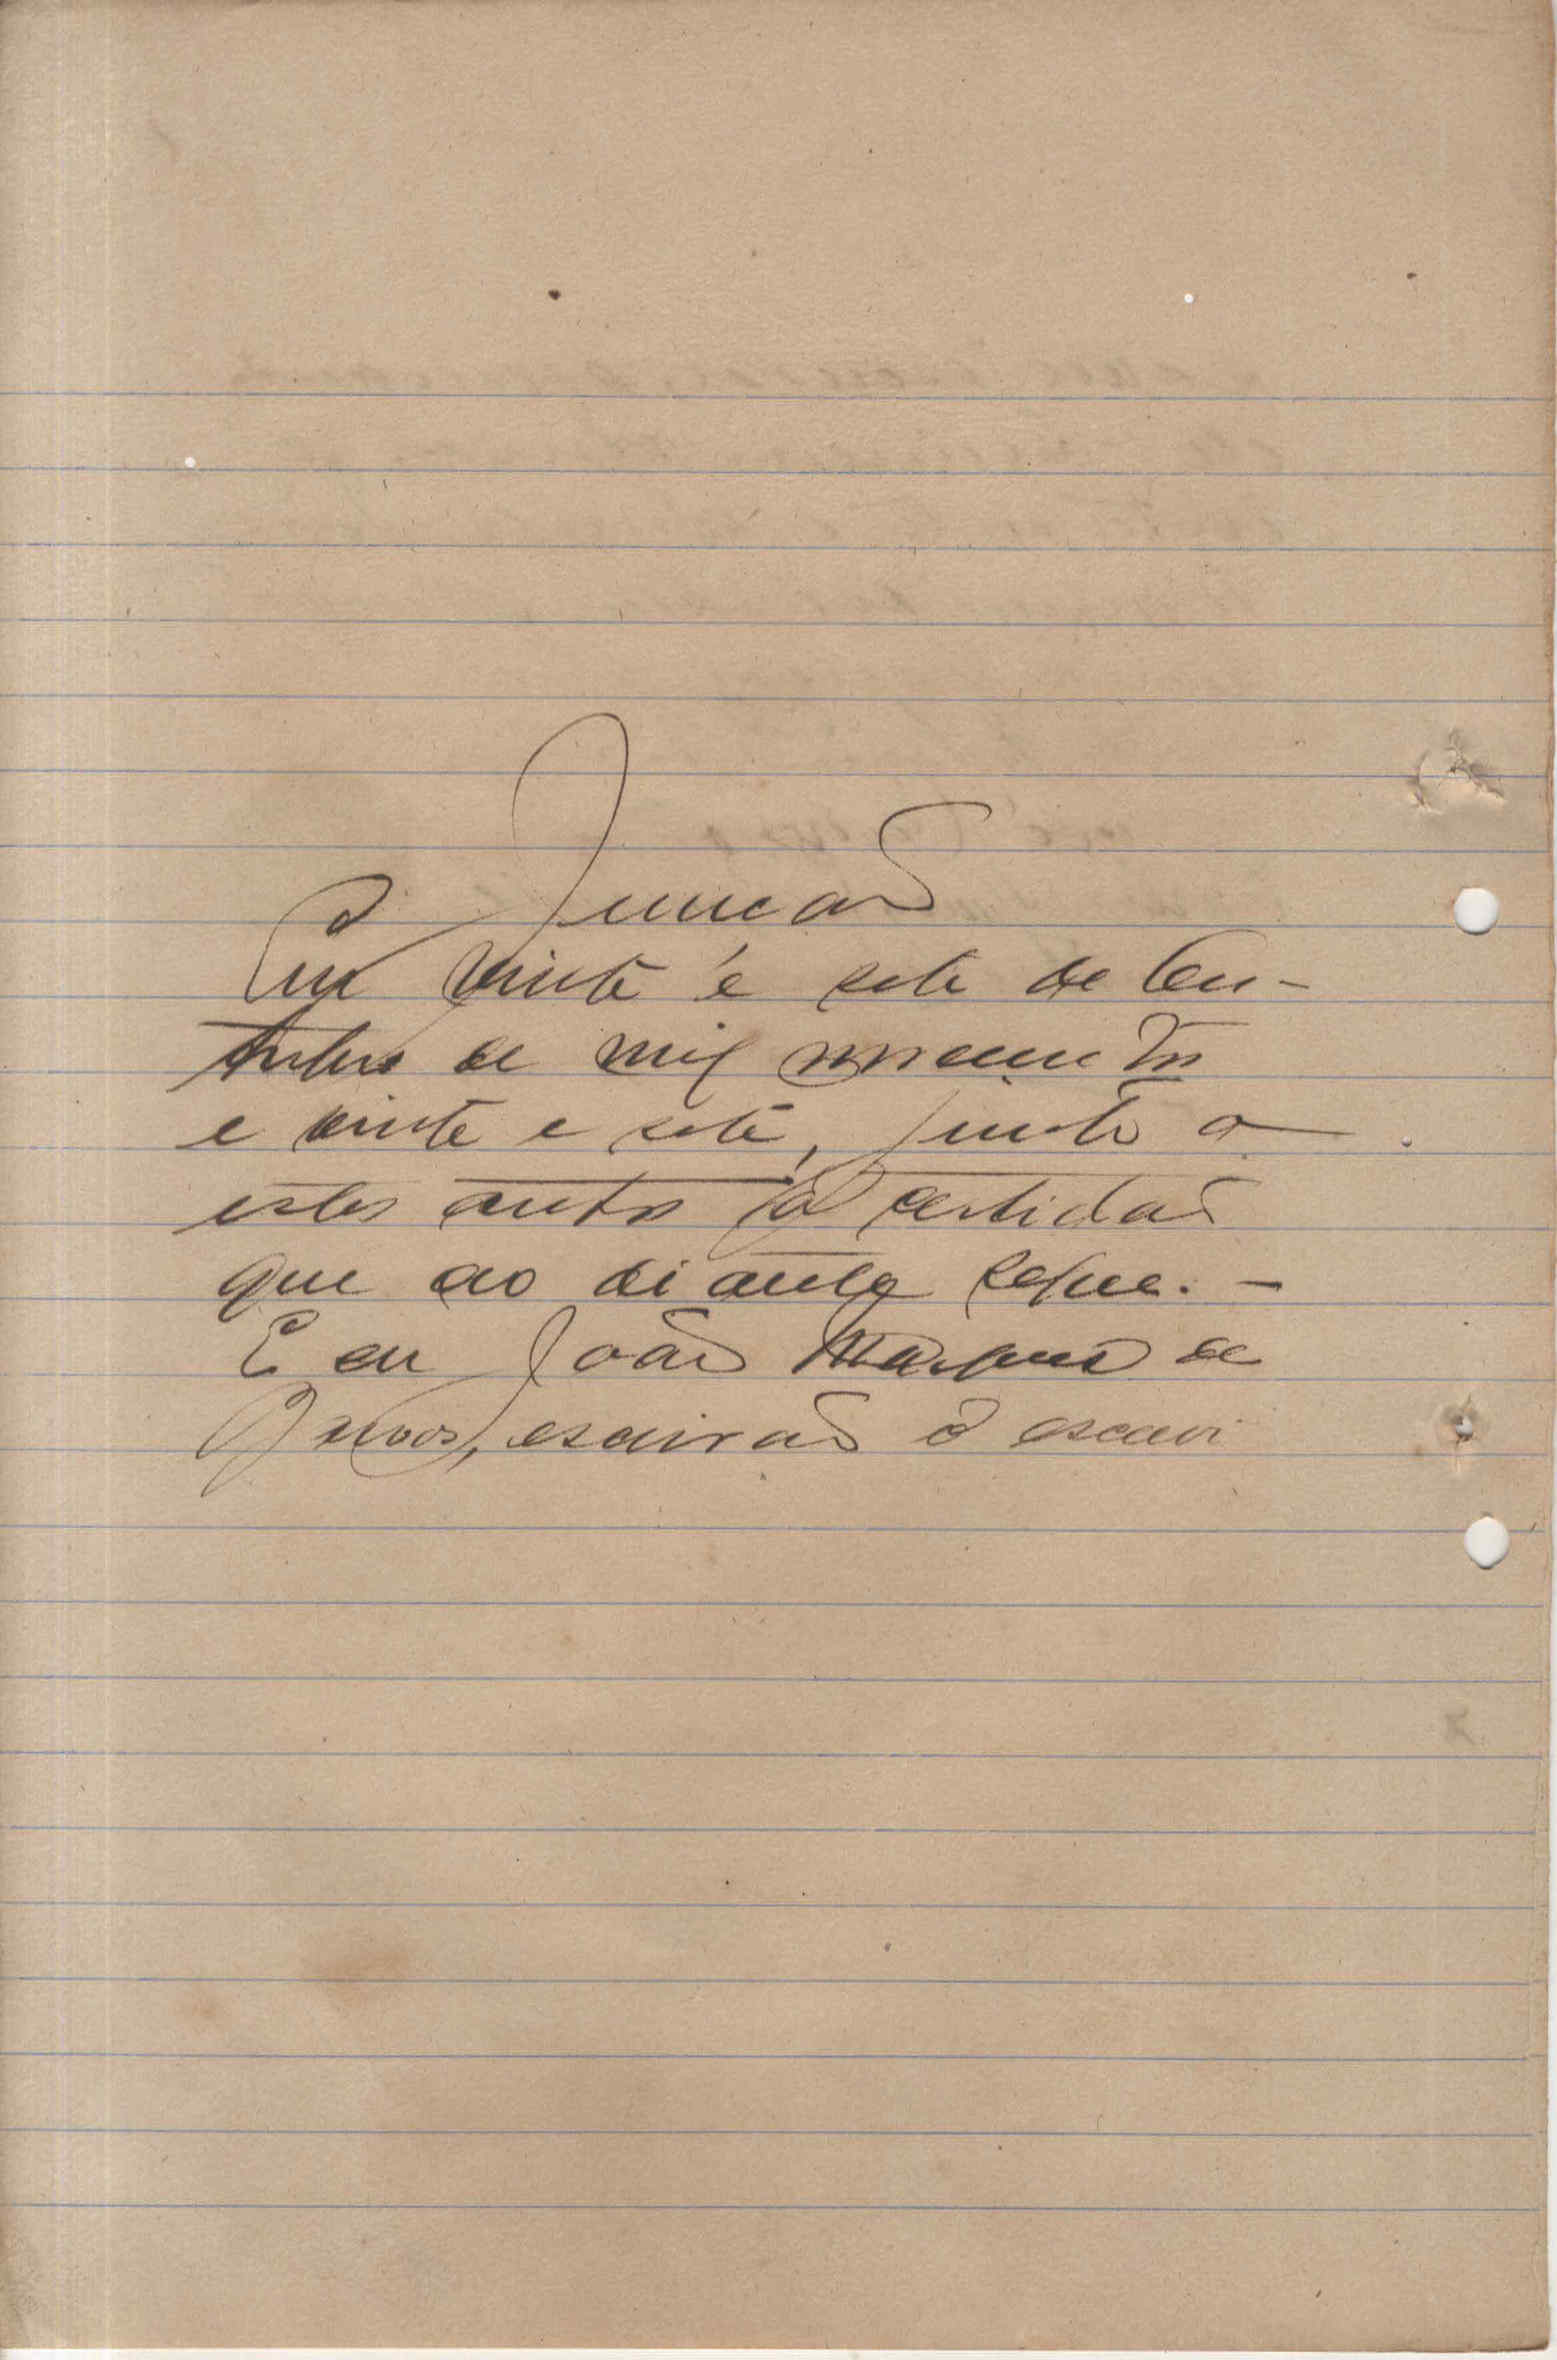 Juncção
Em vinte e sete de Ou-
tubro de mil novecentos
e vinte e sete, junto a
estes autos a certidão
que ao diante segue. -
E eu João Marques de
escrivão o escrevi